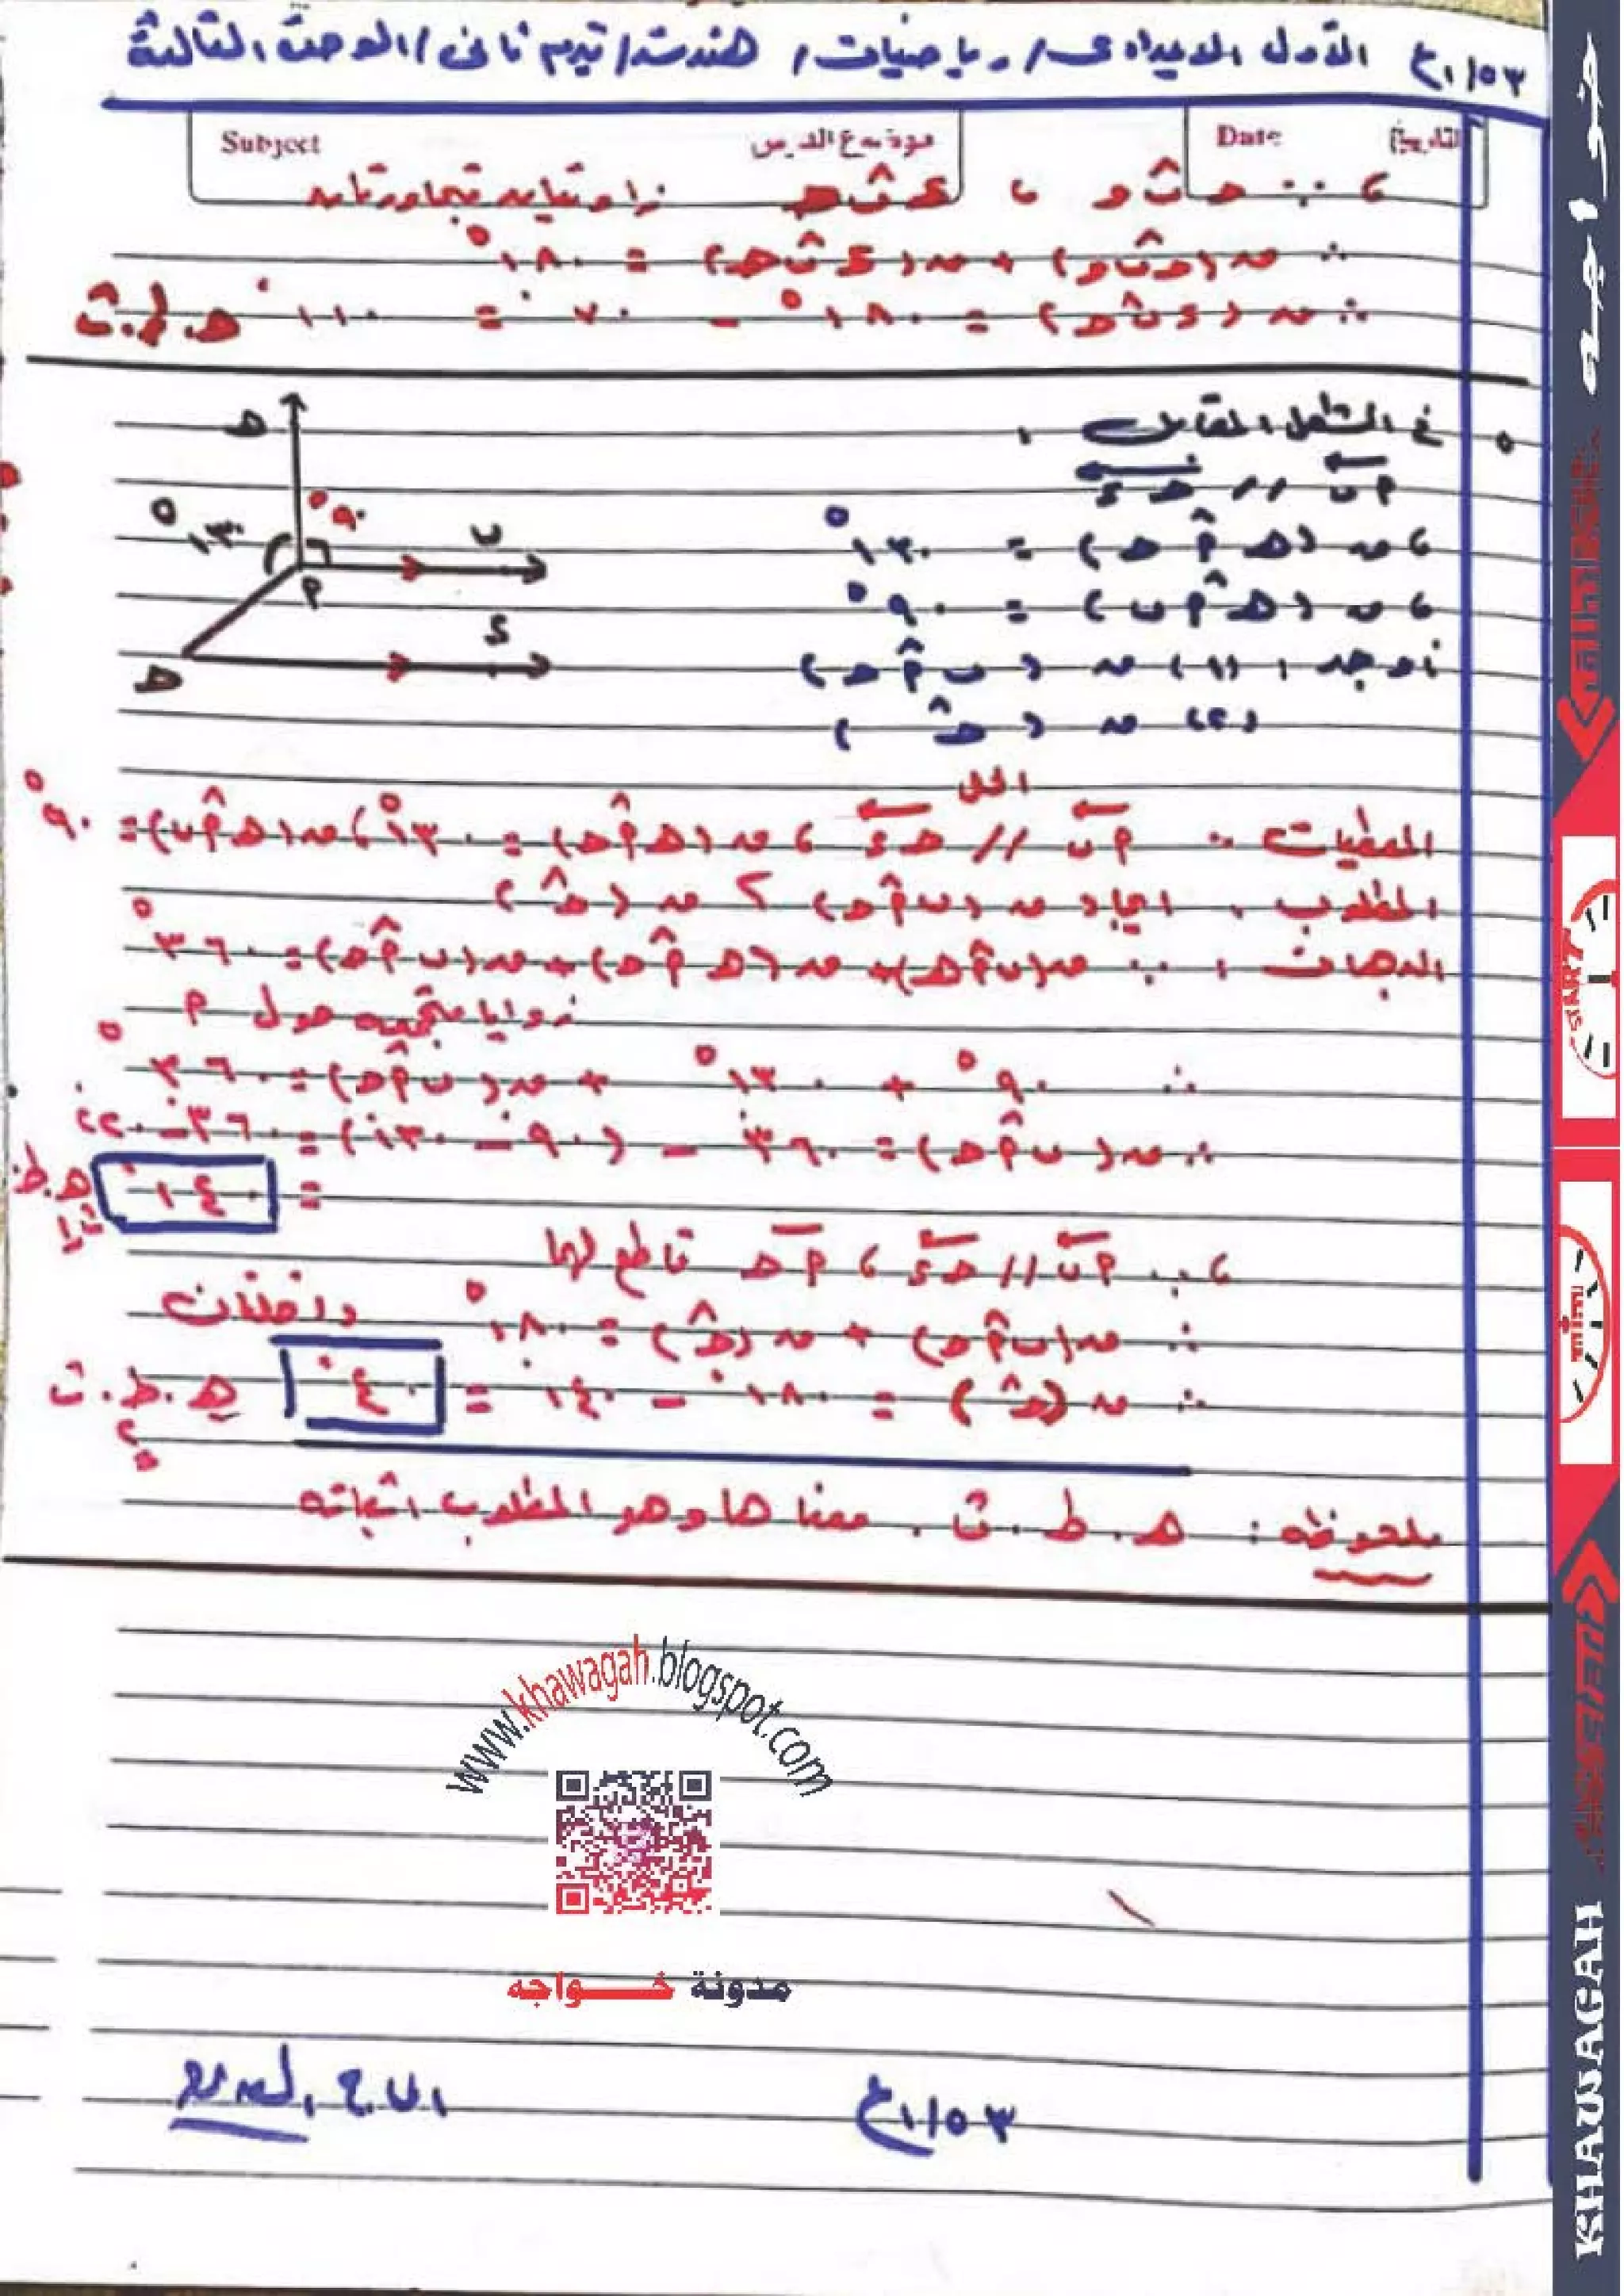 ٥٣/١ع الأول الاعدادى / رياضيات / هندسة / تيرم ثانى / الوحدة الثالثة
Subject موضوع الدرس Date التاريخ
زاويتان متجاورتان
١٨٠° = 
∴ ق(د ب̂ هـ) = ١٨٠° - ٧٠° = ١١٠° هـ.ط.ث
٥ فى الشكل المقابل :
أب // جـ د
، ق(هـ أ̂ جـ) = ١٣٠°
، ق(هـ أ̂ ب) = ٩٠°
أوجد : (١) ق(ب أ̂ جـ)
(٢) ق(جـ̂)
هـ
٩٠°
١٣٠°
ب
أ
د
جـ
الحل
المعطيات : أب // جـ د ، ق(هـ أ̂ جـ) = ١٣٠° ، ق(هـ أ̂ ب) = ٩٠°
المطلوب : ايجاد ق(ب أ̂ جـ) ، ق(جـ̂)
البرهان : ∵ ق(ب أ̂ هـ) + ق(هـ أ̂ جـ) + ق(ب أ̂ جـ) = ٣٦٠°
زوايا متجمعه حول أ
∴ ٩٠° + ١٣٠° + ق(ب أ̂ جـ) = ٣٦٠°
∴ ق(ب أ̂ جـ) = ٣٦٠° - (٩٠° - ١٣٠°) = ٣٦٠° - ٢٢٠°
= ١٤٠° هـ.ط.ث
١
، ∵ أب // جـ د ، أجـ قاطع لهما
∴ ق(ب أ̂ جـ) + ق(جـ̂) = ١٨٠° داخلتان
∴ ق(جـ̂) = ١٨٠° - ١٤٠° = ٤٠° هـ.ط.ث
٢
ملحوظه : هـ.ط.ث . معناها وهو المطلوب اثباته
www.khawagah.blogspot.com
مدونة خـــواجه
٥٣/١ع
خواجه
START
KHAWAGAH